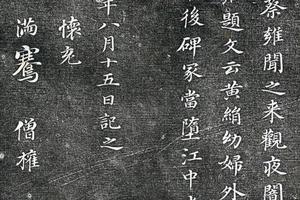 蔡雍聞之來觀夜闇
題文云黃絹幼婦外
後碑冢當墮江中
年八月十五日記之
懷充
滿騫 僧權